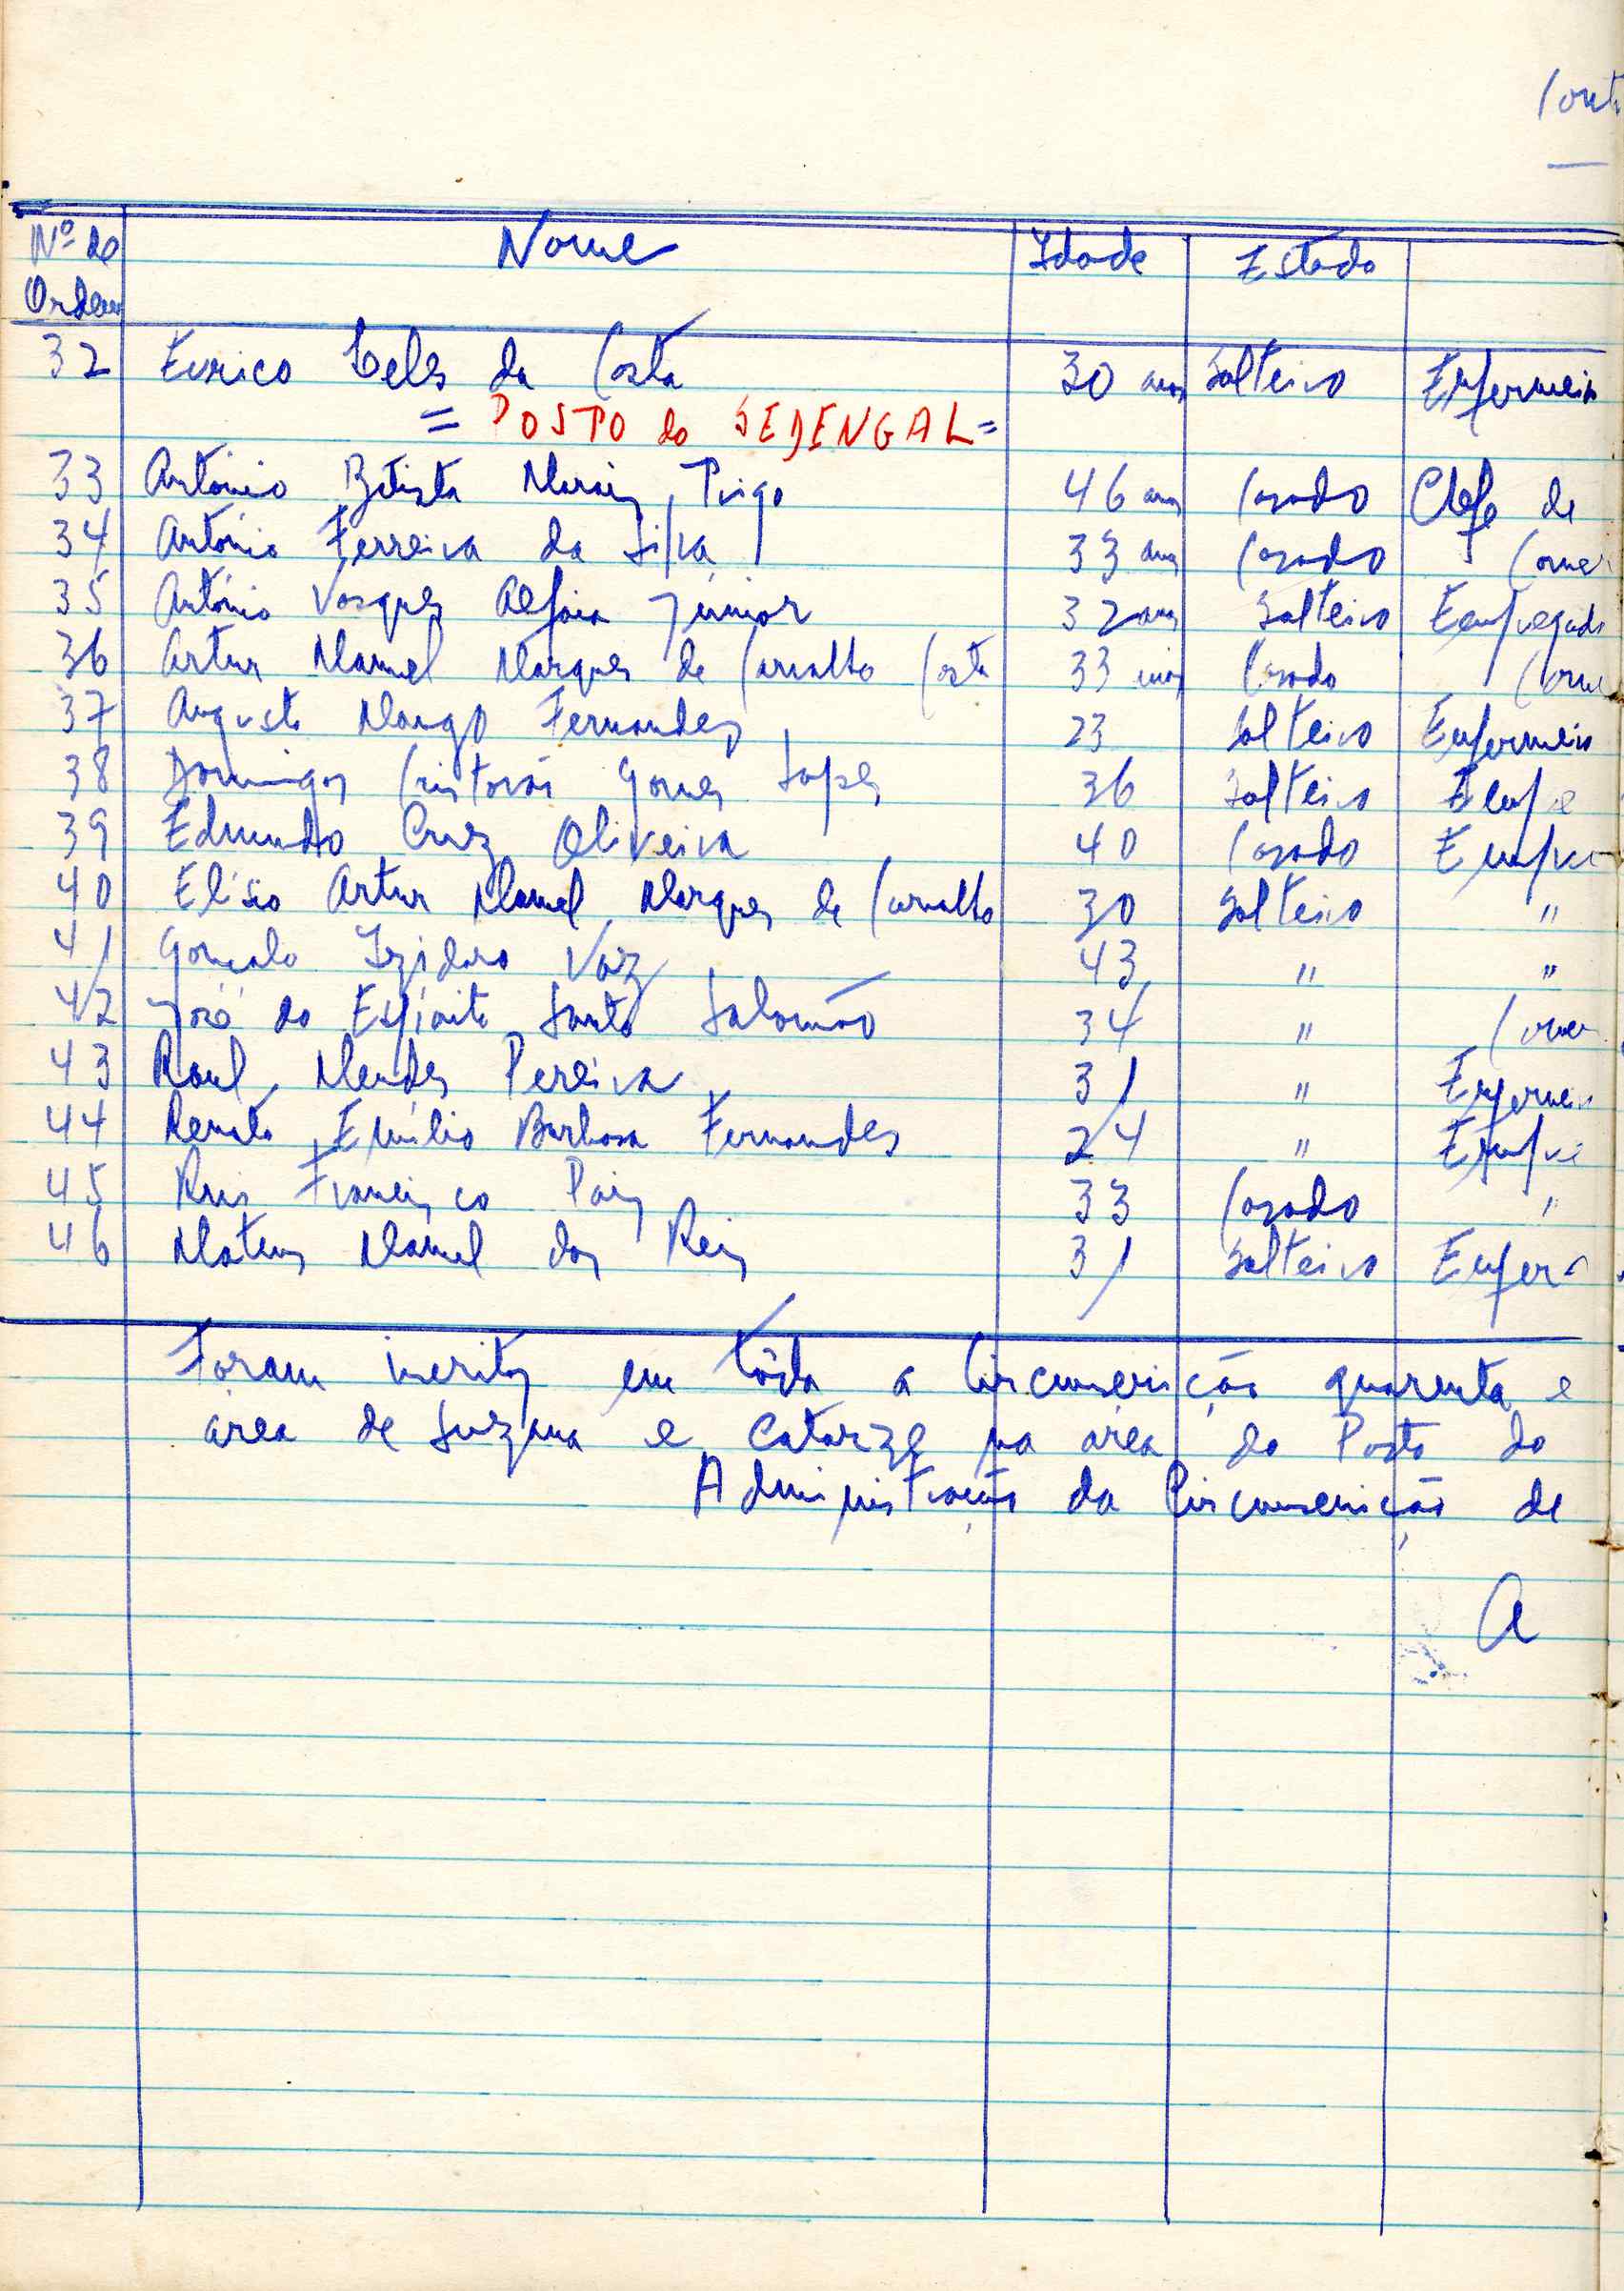 Cont
Nº de Ordem Nome Idade Estado
32 Eurico Teles da Costa 30 anos Solteiro Enfermeir
= POSTO do SEDENGAL =
33 António Batista Morais Trigo 46 anos Casado Chefe de
34 António Ferreira da Silva 33 anos Casado Comer
35 António Vasques Alfaia Júnior 32 anos Solteiro Empregado
36 Artur Manuel Marques de Carvalho Costa 33 anos Casado Comer
37 Augusto Mango Fernandes 23 Solteiro Enfermeiro
38 Domingos Cristovão Gomes Lopes 36 Solteiro Empre
39 Edmundo Cruz Oliveira 40 Casado Empre
40 Elísio Artur Manuel Marques de Carvalho 30 Solteiro "
41 Gonçalo Izidoro Vaz 43 " "
42 José do Espírito Santo Salomão 34 " Comer
43 Raul Mendes Pereira 31 " Enfermei
44 Renato Emílio Barbosa Fernandes 24 " Empre
45 Rui Francisco Pais 33 Casado "
46 Mateus Manuel dos Reis 31 Solteiro Enfer
Foram inscritos em tôda a Circunscrição quarenta e
área de Suzana e catorze na área do Posto do
Administração da Circunscrição de
A